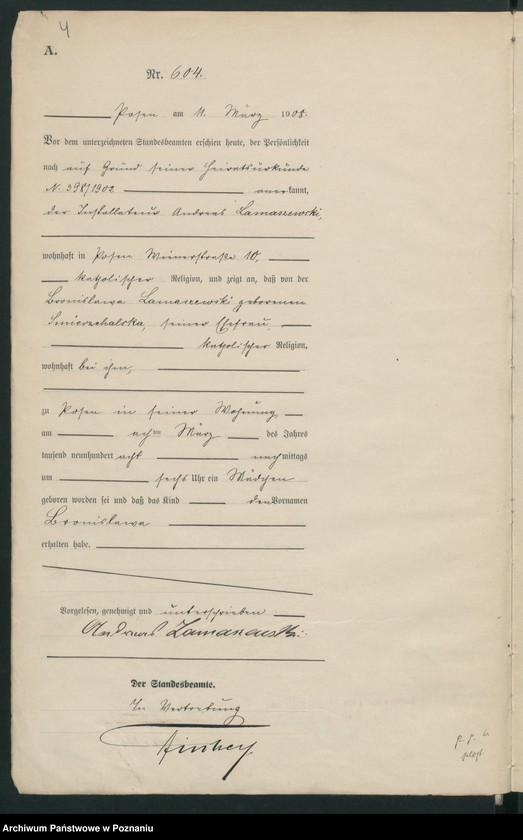 4
A.
Nr. 604.
Posen am 11. März 1908.
Vor dem unterzeichneten Standesbeamten erschien heute, der Persönlichkeit
nach auf Grund seiner Heiratsurkunde
N. 398/1902 anerkannt,
der Installateur Andreas Lamaszewski,
wohnhaft in Posen Wienerstraße 10,
katholischer Religion, und zeigt an, daß von der
Bronislawa Lamaszewski geborenen
seiner Ehefrau,
katholischer Religion,
wohnhaft bei ihm,
zu Posen in seiner Wohnung
am März des Jahres
tausend neunhundert acht nachmittags
um sechs Uhr ein Mädchen
geboren worden sei und daß das Kind den Vornamen
Bronislawa
erhalten habe.
Vorgelesen, genehmigt und unterschrieben
Andreas Lamaszewski.
Der Standesbeamte.
In Vertretung
Archiwum Państwowe w Poznaniu